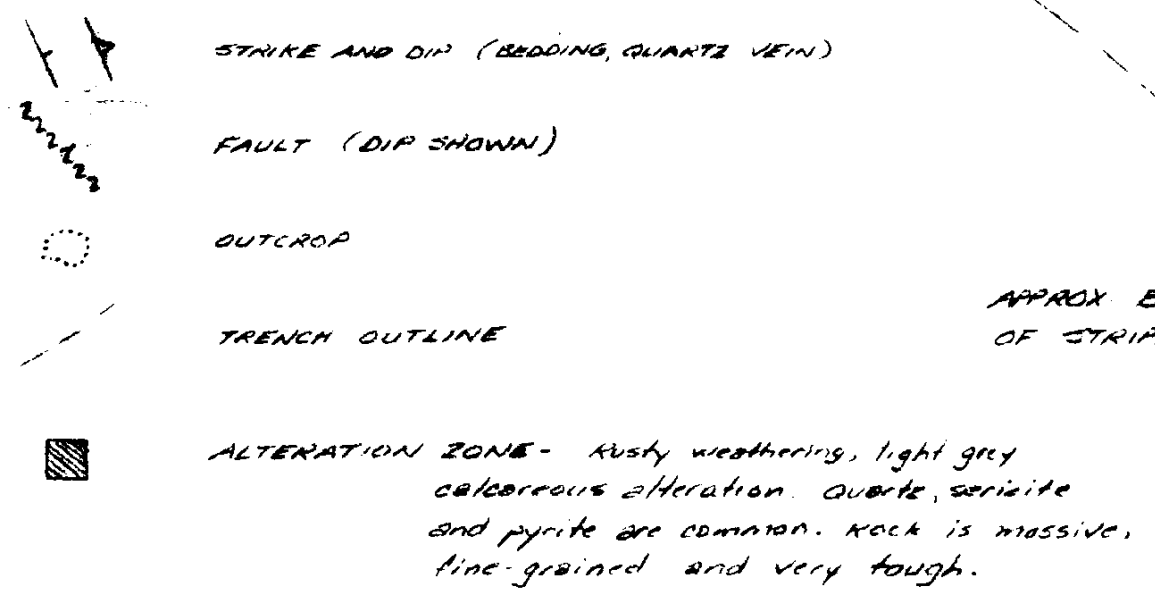 STRIKE AND DIP (BEDDING, QUARTZ VEIN)
FAULT (DIP SHOWN)
OUTCROP
TRENCH OUTLINE
APPROX E
OF STRIP
ALTERATION ZONE - Rusty weathering, light grey
calcareous alteration. Quartz, sericite
and pyrite are common. Rock is massive,
fine-grained and very tough.